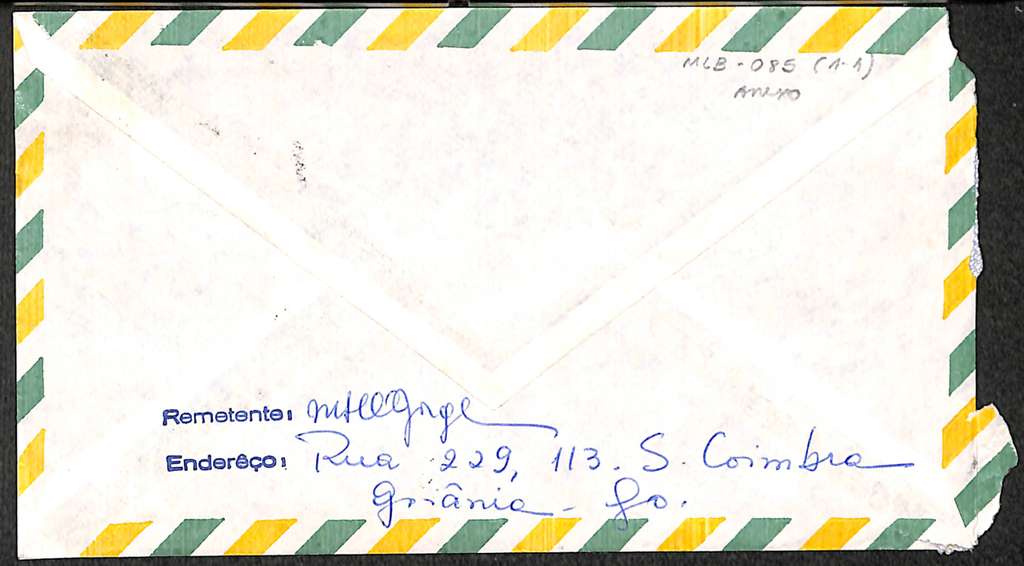 MLB - 085 (1-1)
Anexo
Remetente:
Enderêço: Rua 229, 113. S. Coimbra
Goiânia - Go.